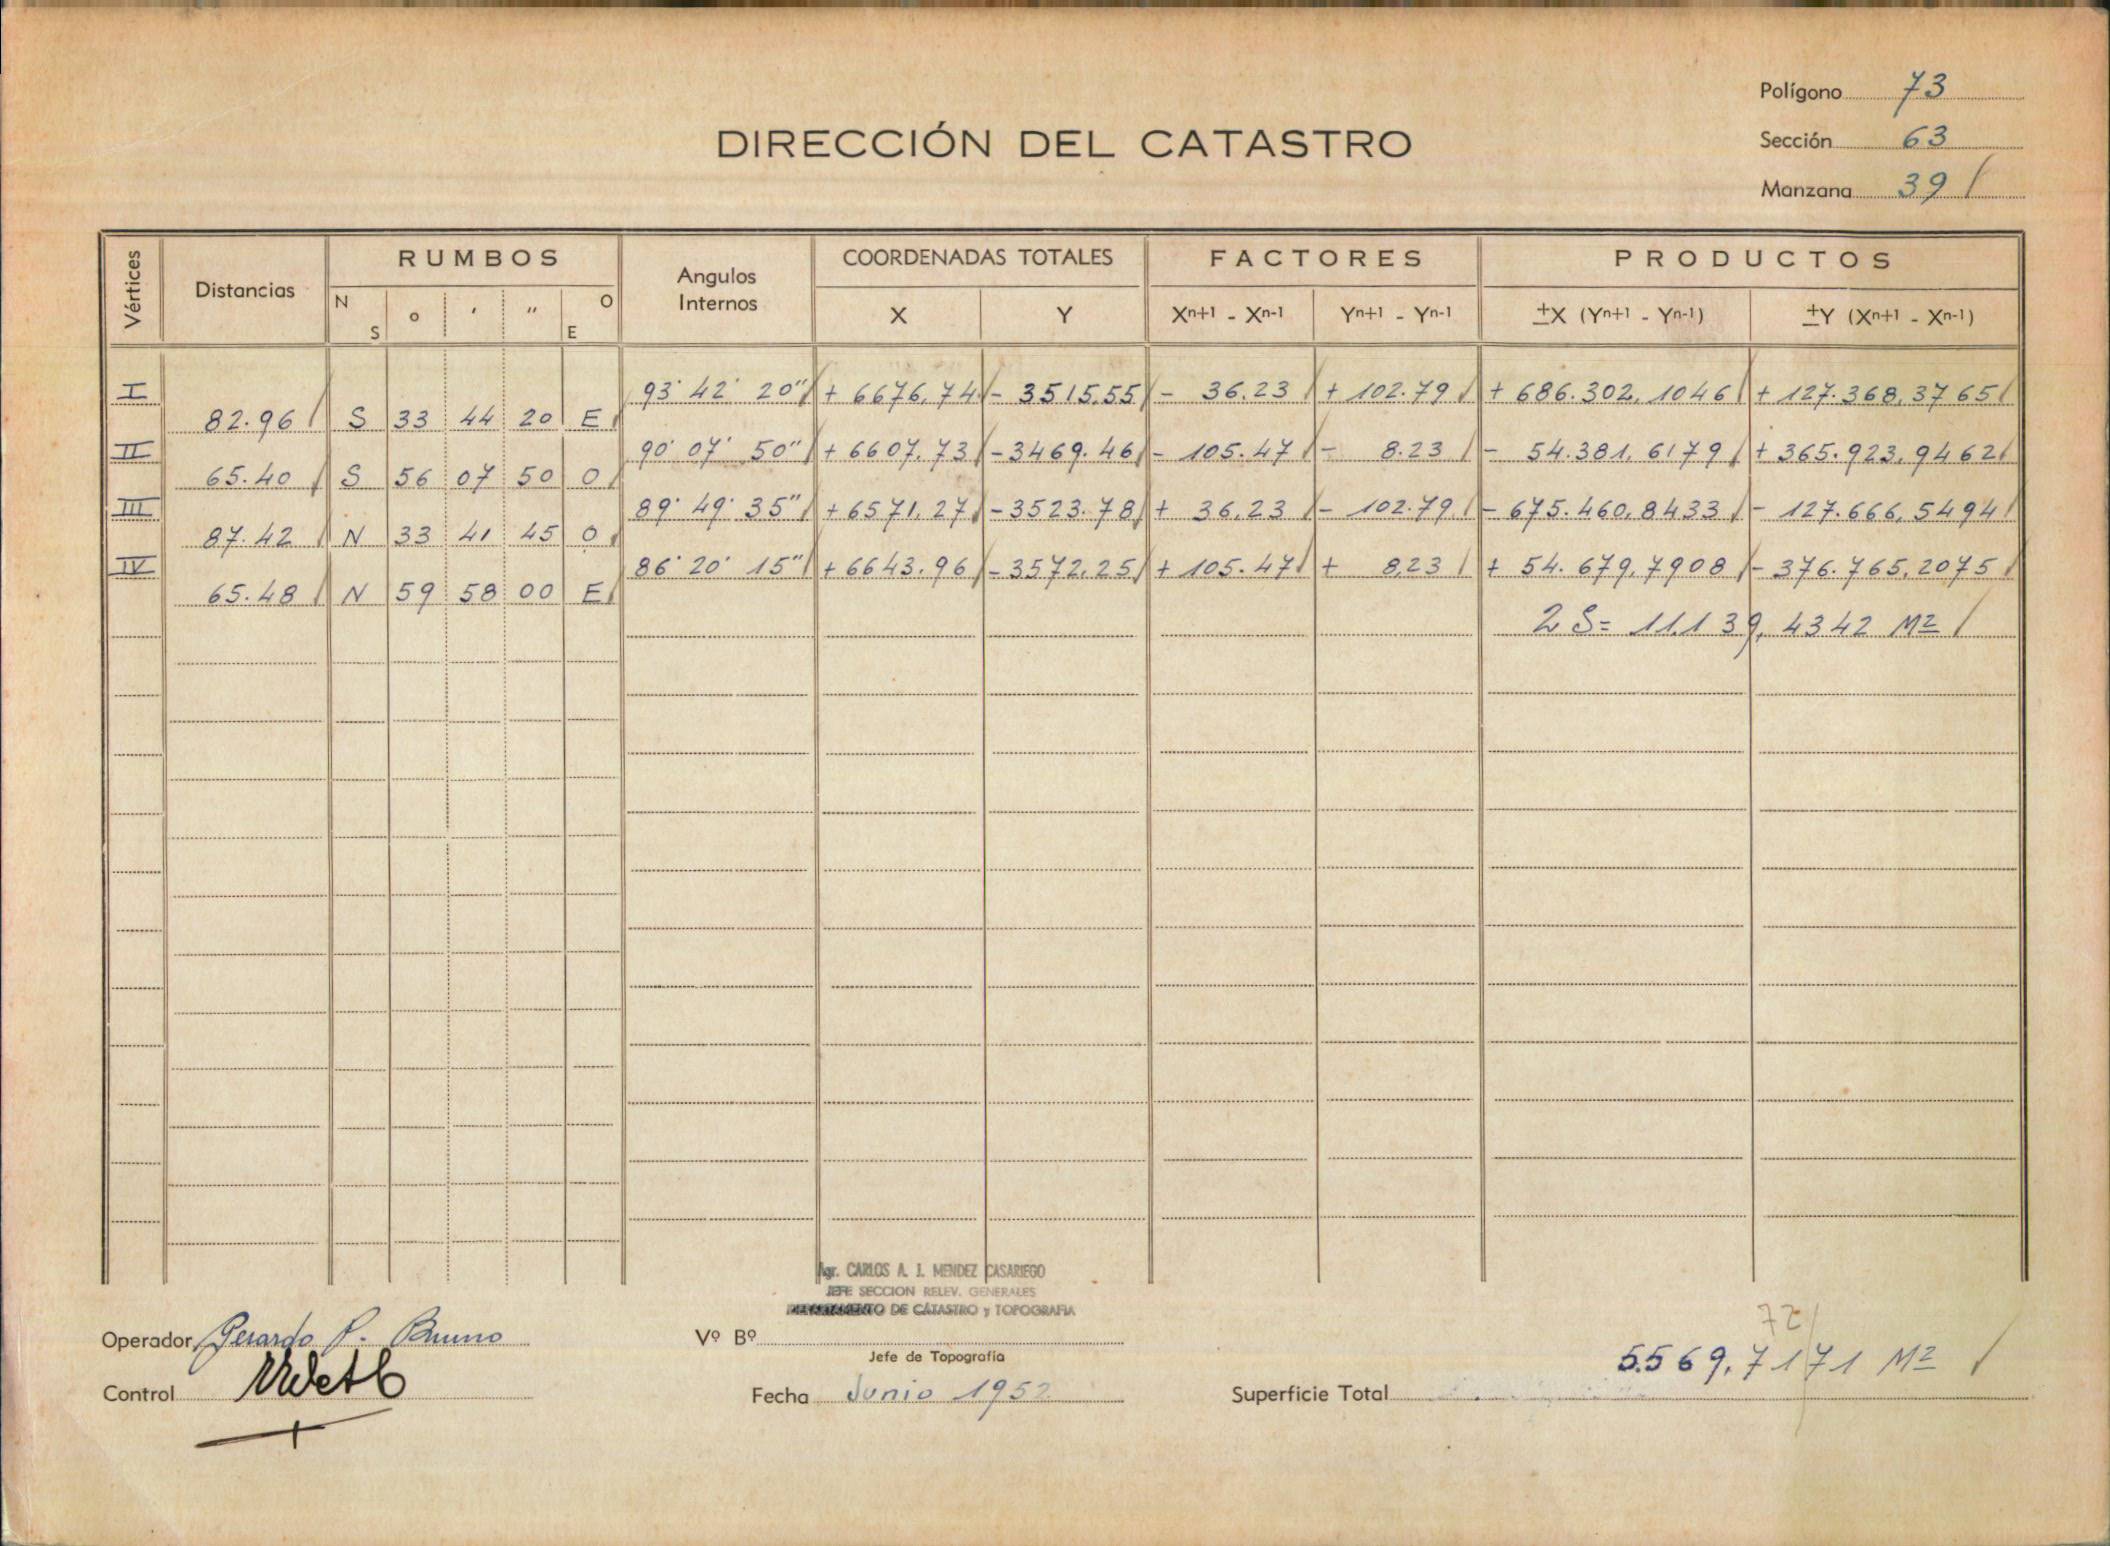 Polígono 73
DIRECCIÓN DEL CATASTRO
Sección 63
Manzana 39
Vértices Distancias RUMBOS Angulos Internos COORDENADAS TOTALES FACTORES PRODUCTOS
N S o ′ ″ O E X Y Xn+1 - Xn-1 Yn+1 - Yn-1 ±X (Yn+1 - Yn-1) ±Y (Xn+1 - Xn-1)
I 93° 42' 20" + 6676,74 - 3515,55 - 36,23 + 102.79 + 686.302,1046 + 127.368,3765
82.96 S 33 44 20 E
II 90° 07' 50" + 6607,73 - 3469.46 - 105.47 - 8.23 - 54.381,6179 + 365.923,9462
65.40 S 56 07 50 O
III 89° 49' 35" + 6571,27 - 3523.78 + 36,23 - 102.79 - 675.460,8433 - 127.666,5494
87.42 N 33 41 45 O
IV 86° 20' 15" + 6643.96 - 3572,25 + 105.47 + 8,23 + 54.679,7908 - 376.765,2075
65.48 N 59 58 00 E
2 S= 11.139,4342 M2
Agr. CARLOS A. J. MENDEZ CASARIEGO
JEFE SECCION RELEV. GENERALES
DE CATASTRO y TOPOGRAFIA
Operador Gerardo P. Bruno
Vº Bº
Jefe de Topografía
72
5.569,7171 M2
Control
Fecha Junio 1952
Superficie Total